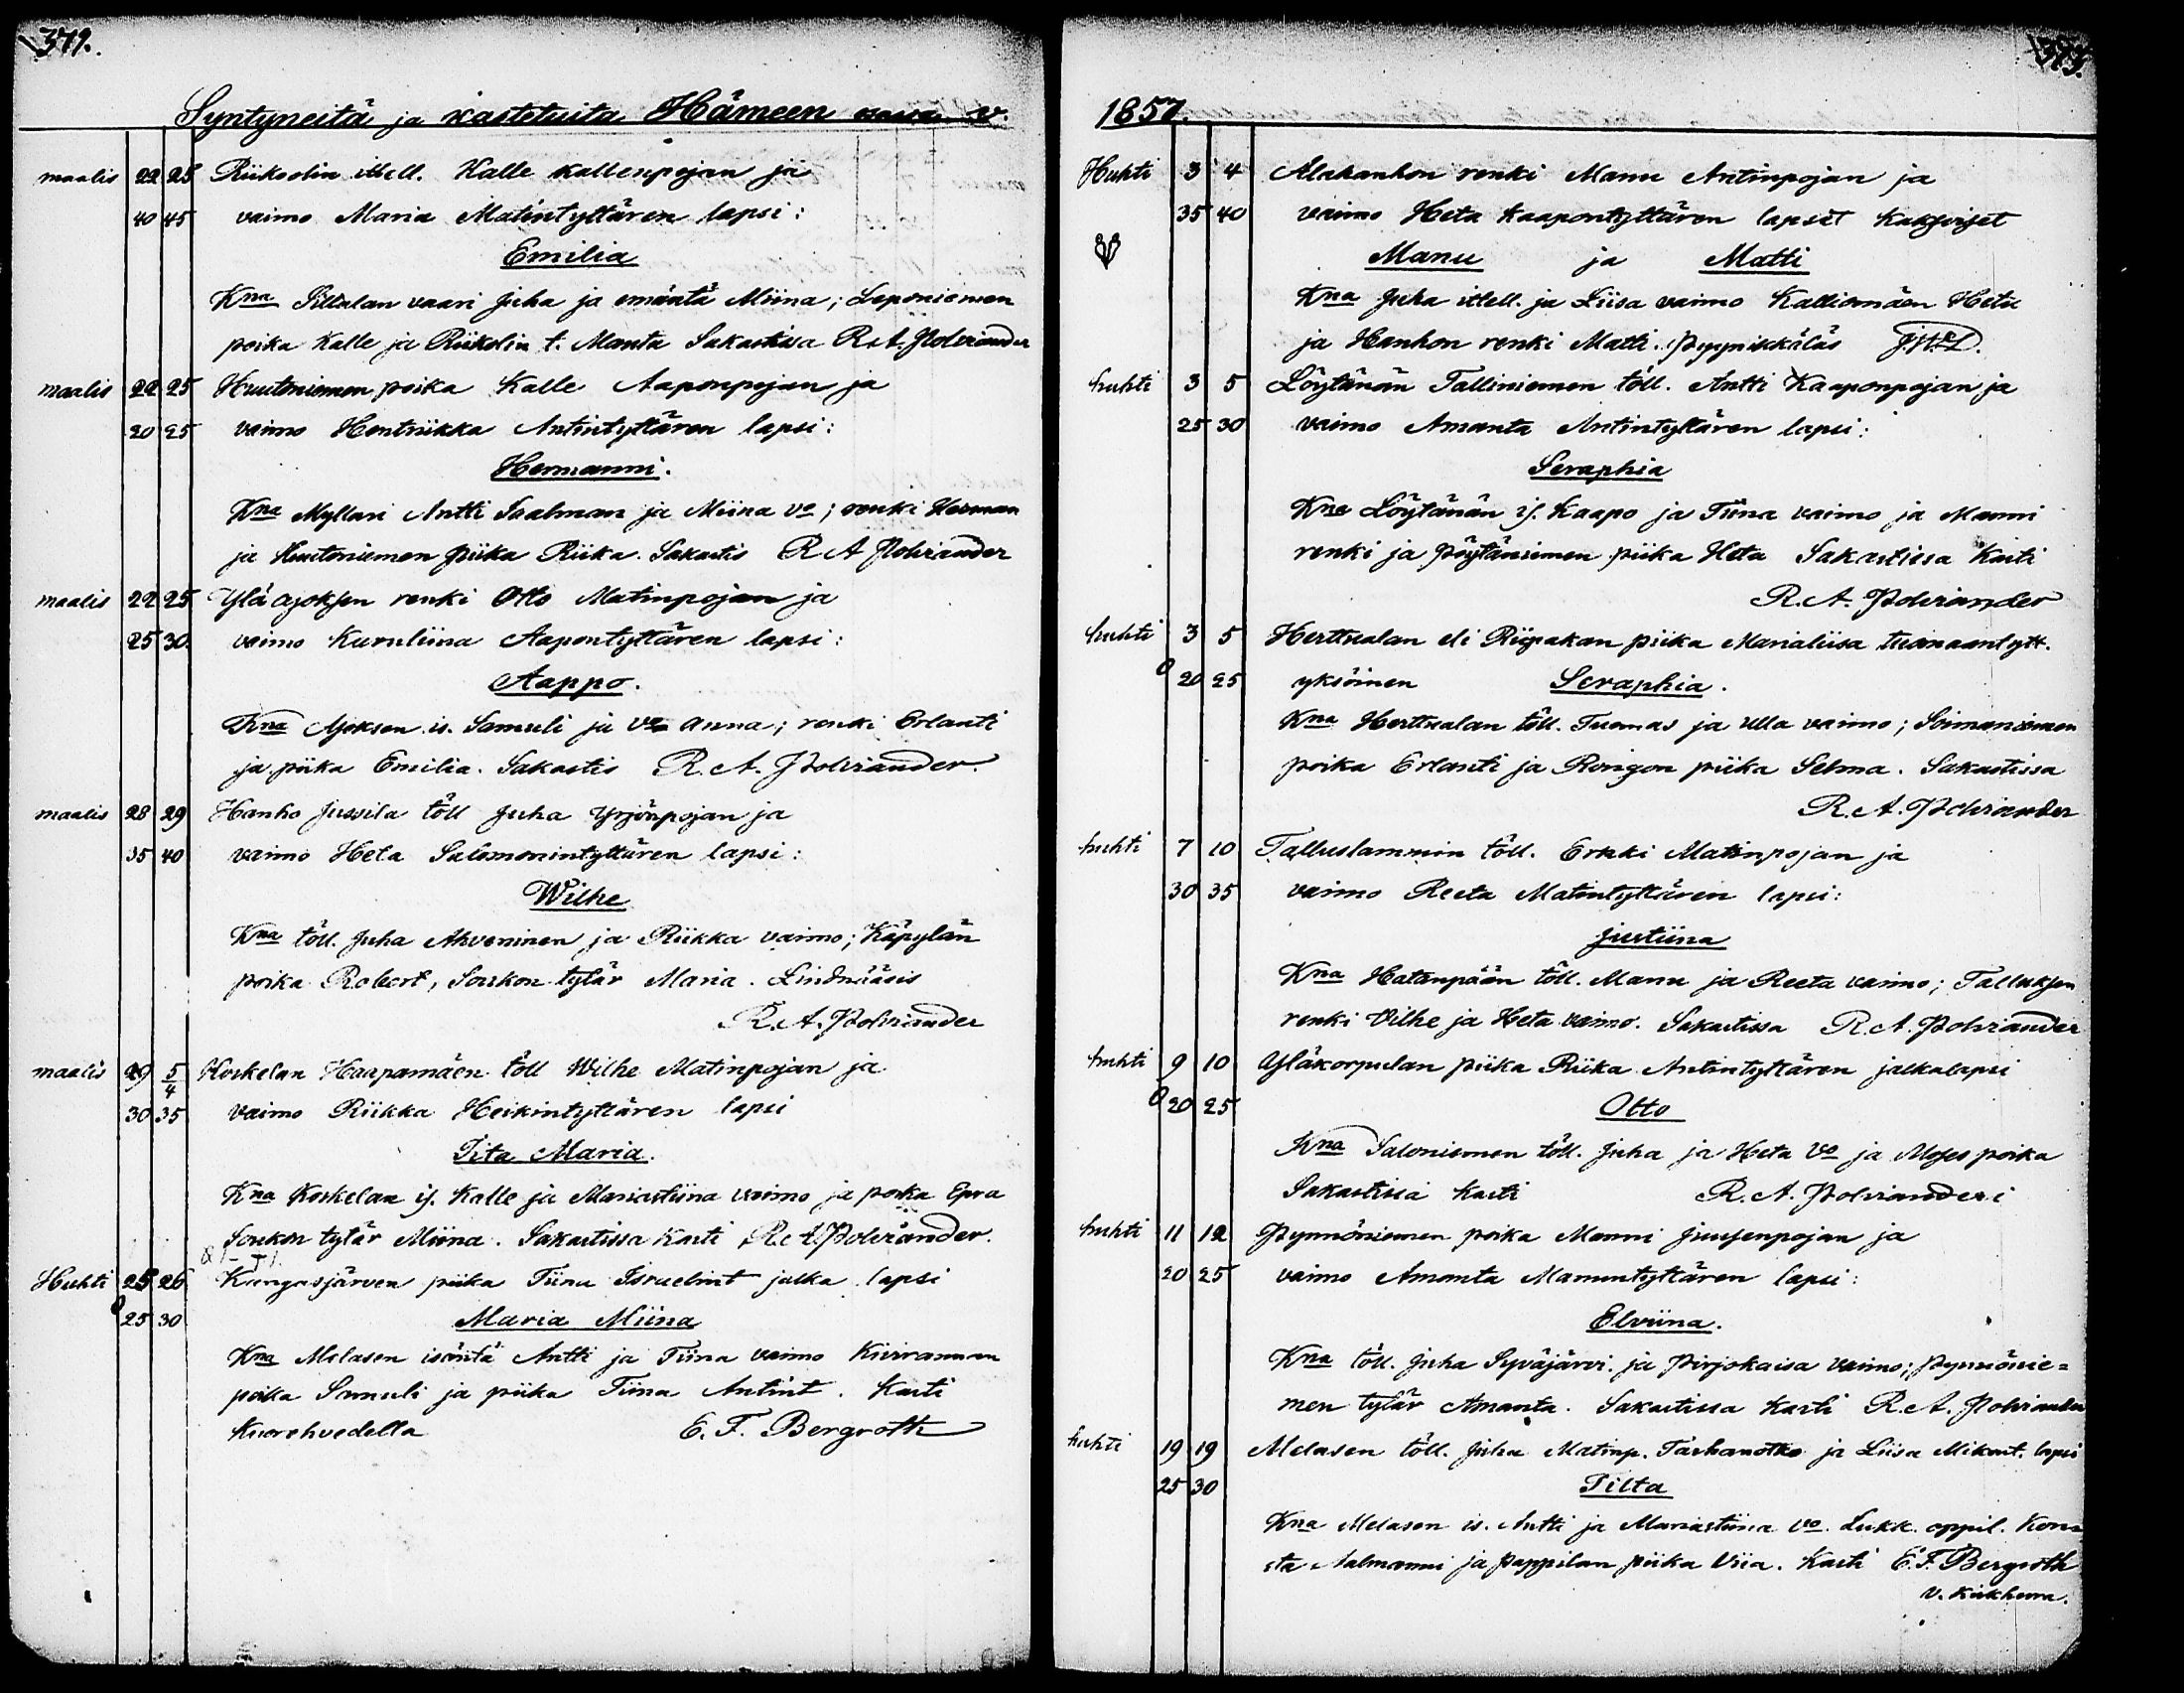 379.
Syntyneitä ja kastetuita Hämeen v.
maalis 22 25 Riikolin itsell. Kalle Kallenpojan ja
40 45 vaimo Maria Matintyttären lapsi:
Emilia
Kna Siltalan vaari Juha ja emäntä Miina; Leponiemen
poika Kalle ja Riikolin t. Manta Sakastissa R.A. Polviander
maalis 22 25 Huutoniemen poika Kalle Aaponpojan ja
20 25 vaimo Hentriikka Antintyttären lapsi:
Hermanni.
Kna Myllari Antti Saalman ja Miina vo; renki Herman
ja Huutoniemen piika Riika. Sakastis R A Polviander
maalis 22 25 Ylä ajoksen renki Otto Matinpojan ja
25 30. vaimo Karuliina Aapontyttären lapsi:
Aappo.
Kna Ajoksen is. Samuli ja vo Anna; renki Erlanti
ja piika Emilia. Sakastis R. A. Polviander.
maalis 28 29 Hanho Jussila töll Juha Yrjönpojan ja
35 40 vaimo Heta Salomonintyttären lapsi:
Wilhe
Kna töll. Juha Ahveninen ja Riikka vaimo; Käpylän
poika Robert, Soukon tytär Maria.
R. A. Polviander
maalis 29 5/4 Koskelan Haapamäen töll Wilhe Matinpojan ja
30 35 vaimo Riikka Heikintyttären lapsi
Iita Maria.
Kna Koskelan is. Kalle ja Mariastiina vaimo ja poika Epra
Soukon tytär Miina. Sakastissa Kasti R. A. Polviander.
Huhti 25 26 Kangasjärven piika Tiina Israelint jalka lapsi
25 30 Maria Miina
Kna Melasen isäntä Antti ja Tiina vaimo Kivirannan
poika Samuli ja piika Tiina Antint. Kasti
Kuorehvedella E. F. Bergroth
1857.
Huhti 3 4 Alahanhon renki Manu Antinpojan ja
35 40 vaimo Heta Kaapontyttären lapset Kaksoiset
Manu ja Matti
Kna Juha itsell. ja Liisa vaimo Kalliomäen Heta
ja Hanhon renki Matti. Pyynikkäläs
huhti 3 5 Löytänän Talliniemen töll. Antti Kaaponpojan ja
25 30 vaimo Amanta Antintyttären lapsi:
Seraphia
Kna Löytänän is. Kaapo ja Tiina vaimo ja Manni
renki ja Pöytäniemen piika Heta Sakastissa Kasti
R. A. Polviander
huhti 3 5 Herttualan eli Riipakan piika Marialiisa tuomaantytt.
20 25 yksöinen Seraphia.
Kna Herttualan töll. Tuomas ja Ulla vaimo; Soimaniemen
poika Erlanti ja Rongon piika Selma. Sakastissa
R. A. Polviander
huhti 7 10 Talluslammin töll. Erkki Matinpojan ja
30 35 vaimo Reeta Matintyttären lapsi:
Justiina
Kna Hatanpään töll. Manu ja Reeta vaimo; Talluksen
renki Vilhe ja Heta vaimo. Sakastissa R. A. Polviander
huhti 9 10 Yläkorpulan piika Riika Antintyttären jalkalapsi
20 25 Otto
Kna Saloniemen töll. Juha ja Heta vo ja Moses poika
Sakastissa kasti R. A. Polviander i
huhti 11 12 Pynnöniemen poika Manni Juusenpojan ja
20 25 vaimo Amanta Manuntyttären lapsi:
Elviina.
Kna töll. Juha Syväjärvi ja Pirjokaisa vaimo; Pynnönie=
men tytär Amanta. Sakastissa kasti R. A. Polviander
huhti 19 19 Melasen töll. Juha Matinp. Tarhanotko ja Liisa Mikont. lapsi
25 30 Tilta
Kna Melasen is. Antti ja Mariastiina vo. Lukk. oppil. Kon=
sta Aalmanni ja pappilan piika Viia. Kasti E. F. Bergroth
v. kirkherra.